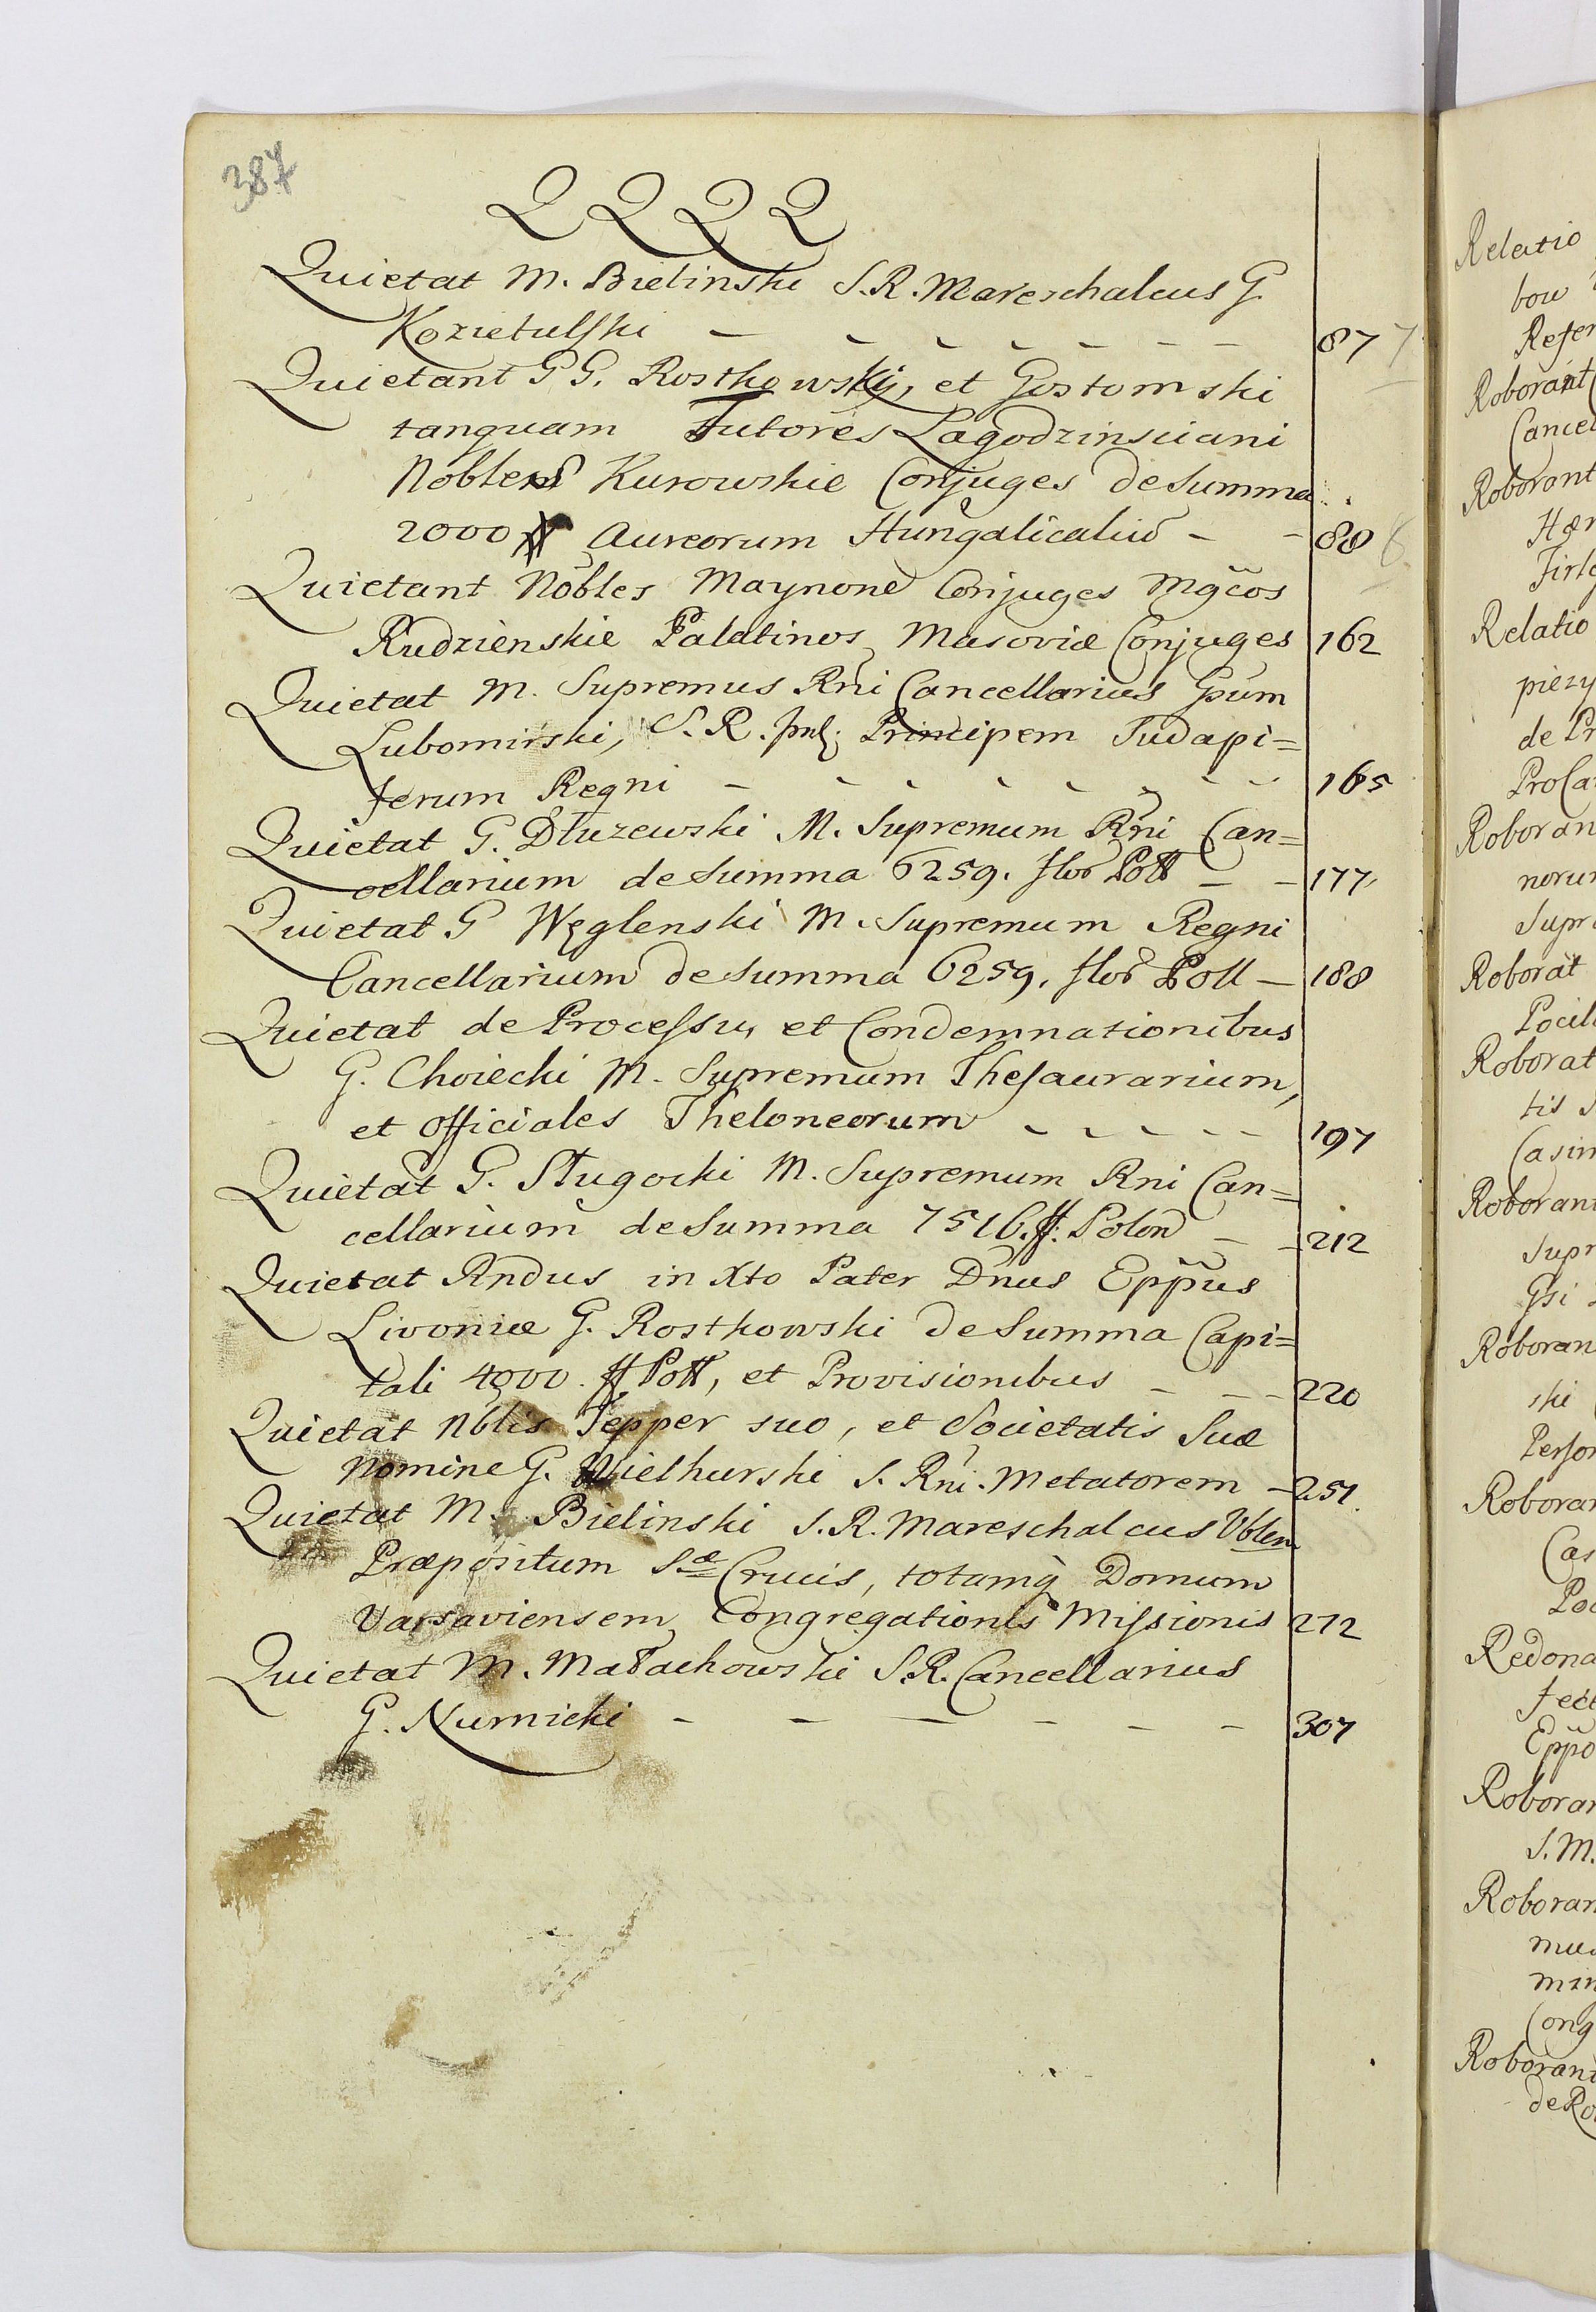 387
Q Q Q Q
Quietat M. Bielinski S. R. Mareschalcus G.
Kozietulski 87 7
Quietant G G. Rostkowskij, et Gostomski
tanquam Tutores Łagodzinsciani
Nobles Kurowskie Conjuges de Summa
2000 # Aureorum Hungalicaliũ 88 8
Quietant Nobles Maynone Conjuges Mg̃cos
Rudzienskie Palatinos Masoviæ Conjuges 162
Quietat M. Supremus Rñi Cancellarius Gsum
Lubomirski, S. R. Principem Dudapi=
ferum Regni 165
Quietat G. Dłuzewski M. Supremum Rñi Can=
cellarium de Summa 6259. flor Poll 177
Quietat G Węglenski M. Supremum Regni
Cancellarium de Summa 6259. flor Poll 188
Quietat de Processu, et Condemnationibus
G. Choiecki M. Supremum Thesaurarium,
et Officiales Theloneorum 197
Quietat G. Sługocki M. Supremum Rni Can=
cellarium de Summa 7516. ff: Polon 212
Quietat Rndus in Xto Pater Dñus Epp̃us
Livoniæ G. Rostkowski de Summa Capi=
tali 4000. ff Poll, et Provisionibus 220
Quietat Nblis Tepper suo, et Societatis Suæ
Nomine G. Wielhurski S. Rñi. Metatorem 251.
Quietat M. Bielinski S. R. Mareschalcus Vblem
Præpositum S æ Crucis, totamq̀ Domum
Varsaviensem Congregationis Missionis 272
Quietat M. Małachowski S. R. Cancellarius
G. Nurnicki 307
Relatio
bow
Refer
Roborant
Cancel
Roborant
Hær
Firle
Relatio
piezy
de Pr
ProCa
Roboran
norum
Supr
Roborat
Pocil
Roborat
tis
Casim
Roborant
Supr
Gsi
Roboran
ski
Person
Roboran
Cas
Poc
Redona
fect
Eppo
Roboran
S. M.
Roboran
mus
min
Cong
Roborant
de Ro